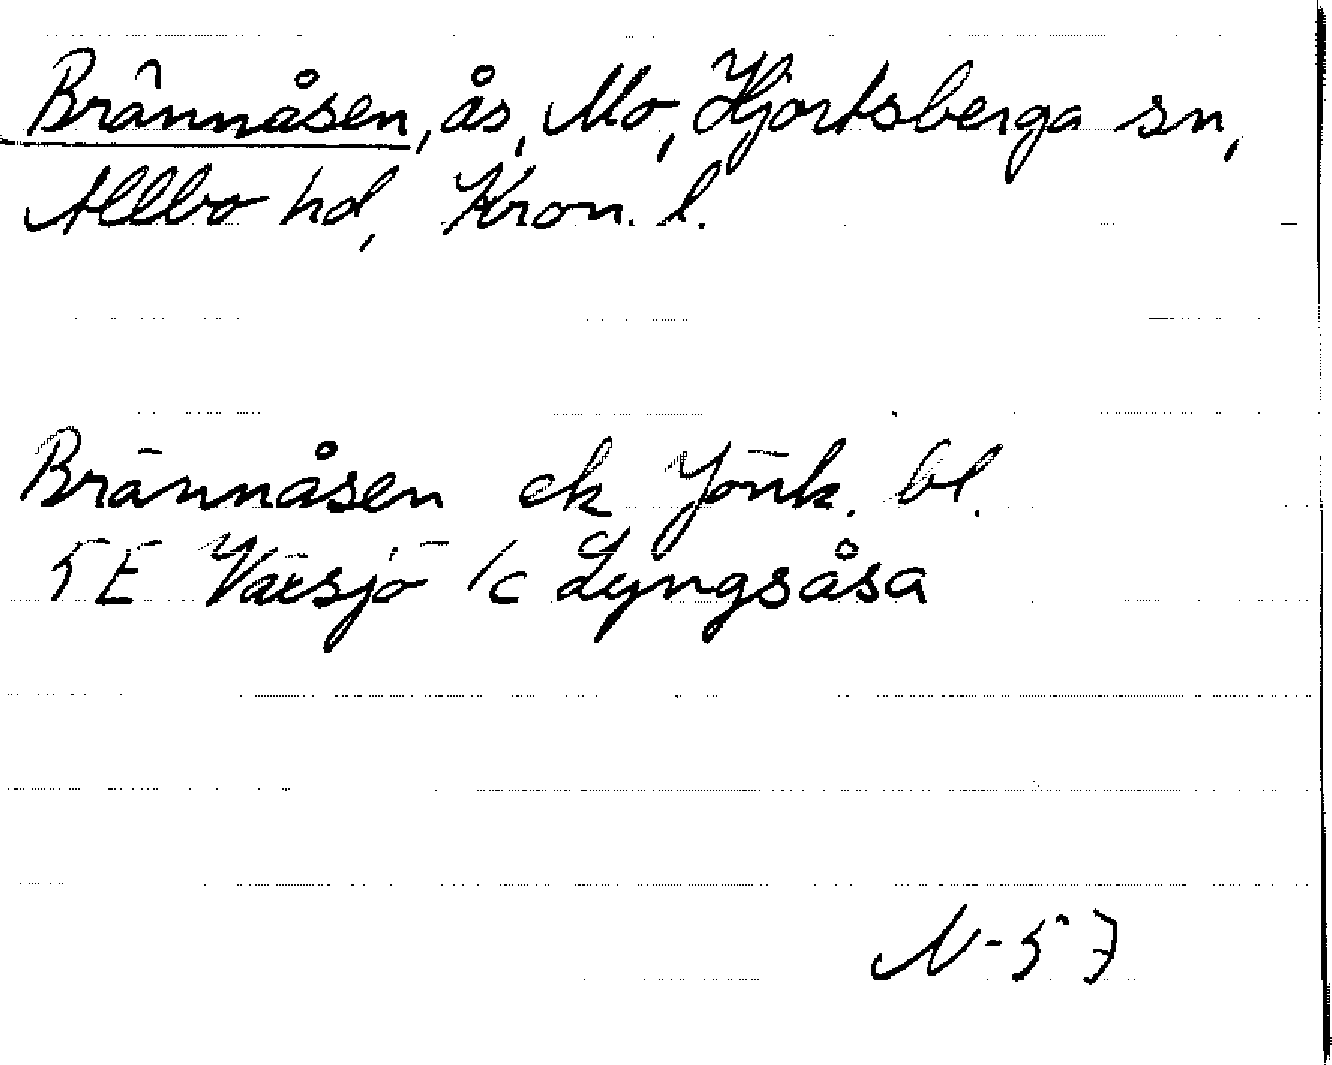 Brännåsen, ås, Mo, Hjortsberga sn,
Allbo hd, Kron. l.
Brännåsen ek Jönk. bl.
5E Växsjö /c Lyngsåsa
N-57